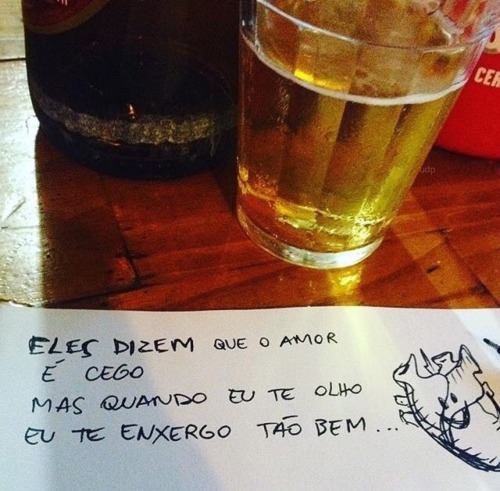 CER
udp
ELES DIZEM QUE O AMOR
É CEGO
MAS QUANDO EU TE OLHO
EU TE ENXERGO TÃO BEM...